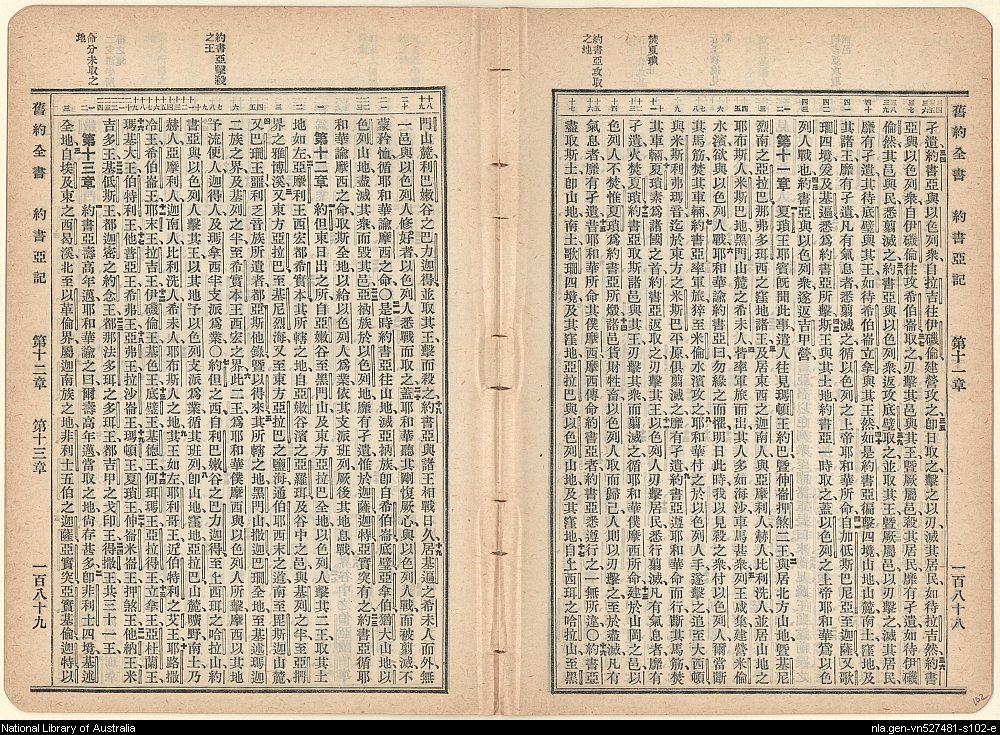 舊約全書 約書亞記 第十一章 一百八十八
焚夏瑣
約書亞攻取之地
孑遺約書亞與以色列衆自拉吉往伊磯倫建營攻之卽日取之擊之以刃滅其居民如待拉吉然約書
亞與以色列衆自伊磯倫往攻希伯崙取之刃擊其邑與其王暨厥屬邑殺其居民靡有孑遺如待伊磯
倫然其邑與其居民悉翦滅之約書亞與以色列衆返攻底璧取之並取其王暨厥屬邑刃擊之滅其居民
靡有孑遺其待底璧與其王如待希伯崙立拿與其王然如是約書亞徧擊四境山地山麓南土窪地及
其諸王靡有孑遺凡有氣息者悉翦滅之循以色列之上帝耶和華所命自加低斯巴尼亞至迦薩又歌
珊四境爰及基遍悉爲約書亞所擊斯王與其土地約書亞一時取之蓋以色列之上帝耶和華爲以色
列人戰也約書亞與以色列衆遂返吉甲營
第十一章 夏瑣王耶賓旣聞此事遣人往見瑪頓王約巴暨伸崙押煞二王與居北方山地暨基尼
烈南之亞拉巴那弗多珥西之窪地諸王及居東西之迦南人與亞摩利人赫人比利洗人並居山地之
耶布斯人米斯巴地黑門山麓之希未人皆率軍旅而出其人多如海沙車馬甚衆列王咸集建營米倫
水濱欲與以色列人戰耶和華諭約書亞曰勿緣之而懼明日此時我以見殺之衆付以色列人爾當斷
其馬筋焚其車輛約書亞率軍旅猝至米倫水濱攻之耶和華付之於以色列人手遂擊之追至大西頓
與米斯利弗瑪音迄於東方之米斯巴平原俱翦滅之靡有孑遺約書亞遵耶和華命而行斷其馬筋焚
其車輛夏瑣素爲諸國之首約書亞返取之刃擊其王以色列人刃擊居民悉行翦滅凡有氣息者靡有
孑遺火焚夏瑣約書亞取斯諸邑與其王刃擊其衆而翦滅之循耶和華僕摩西所命於山岡之邑以
色列人不焚惟夏瑣爲約書亞所燬諸邑貨財牲畜以色列人取而歸已人則以刃擊之至於盡滅凡有
氣息者靡有孑遺昔耶和華所命其僕摩西摩西傳命約書亞者約書亞悉遵行之一無所違〇約書亞
盡取斯土卽山地南土歌珊四境及其窪地亞拉巴與以色列山地及其窪地自上西珥之哈拉山至黑
舊約全書 約書亞記 第十二章 第十三章 一百八十九
約書亞擊殺之王
命分未取之地
門山麓利巴嫩谷之巴力迦得並取其王擊而殺之約書亞與諸王相戰日久居基遍之希未人而外無
一邑與以色列人修好者以色列人悉戰而取之蓋耶和華聽其剛愎厥心與以色列人戰而被翦滅不
蒙矜恤循耶和華諭摩西之命〇是時約書亞往山地滅亞衲族卽自希伯崙底璧亞拿伯猶大山地以
色列山地盡滅其衆而毀其邑亞衲族於以色列地靡有孑遺惟於迦薩迦特亞實突有之約書亞循耶
和華諭摩西之命取斯全地以給以色列人爲業依其支派班列厥後其地息戰
第十二章 約但東日出之所自亞嫩谷至黑門山及東方亞拉巴全地以色列人擊其二王取其土
地如左亞摩利王西宏都希實本其所轄之地自亞嫩谷濱之亞羅珥及谷中之邑與基列之半至亞捫
界之雅博溪又東方亞拉巴至基尼烈海又至東方亞拉巴之鹽海通伯耶西末之道南至毘斯迦山麓
又巴珊王噩利乏音族所遺者都亞斯他錄暨以得來其所轄之地黑門山撒迦巴珊全地至基述瑪迦
二族之界及基列之半至希實本王西宏之界此二王爲耶和華僕摩西與以色列人所擊摩西以其地
予流便人迦得人及瑪拿西半支派爲業〇約但之西自利巴嫩谷之巴力迦得至上西珥之哈拉山約
書亞與以色列人擊其王以其地予以色列支派爲業循其班列卽山地窪地亞拉巴山麓曠野南土乃
赫人亞摩利人迦南人比利洗人希未人耶布斯人之地其王如左耶利哥王近伯特利之艾王耶路撒
冷王希伯崙王耶末王拉吉王伊磯倫王基色王底璧王基德王何珥瑪王亞拉得王立拿王亞杜蘭王
瑪基大王伯特利王他普亞王希弗王亞弗王拉沙崙王瑪頓王夏瑣王伸崙米崙王押煞王他納王米
吉多王基低斯王都迦密之約念王都那法多珥之多珥王都吉甲之戈印王得撒王共三十一王
第十三章 約書亞壽高年邁耶和華諭之曰爾壽高年邁當取之地尚存甚多卽非利士四境基述
全地自埃及東之西曷溪北至以革倫界屬迦南族之地非利士五伯之迦薩亞實突亞實基倫迦特以
102
National Library of Australia
nla.gen-vn527481-s102-e